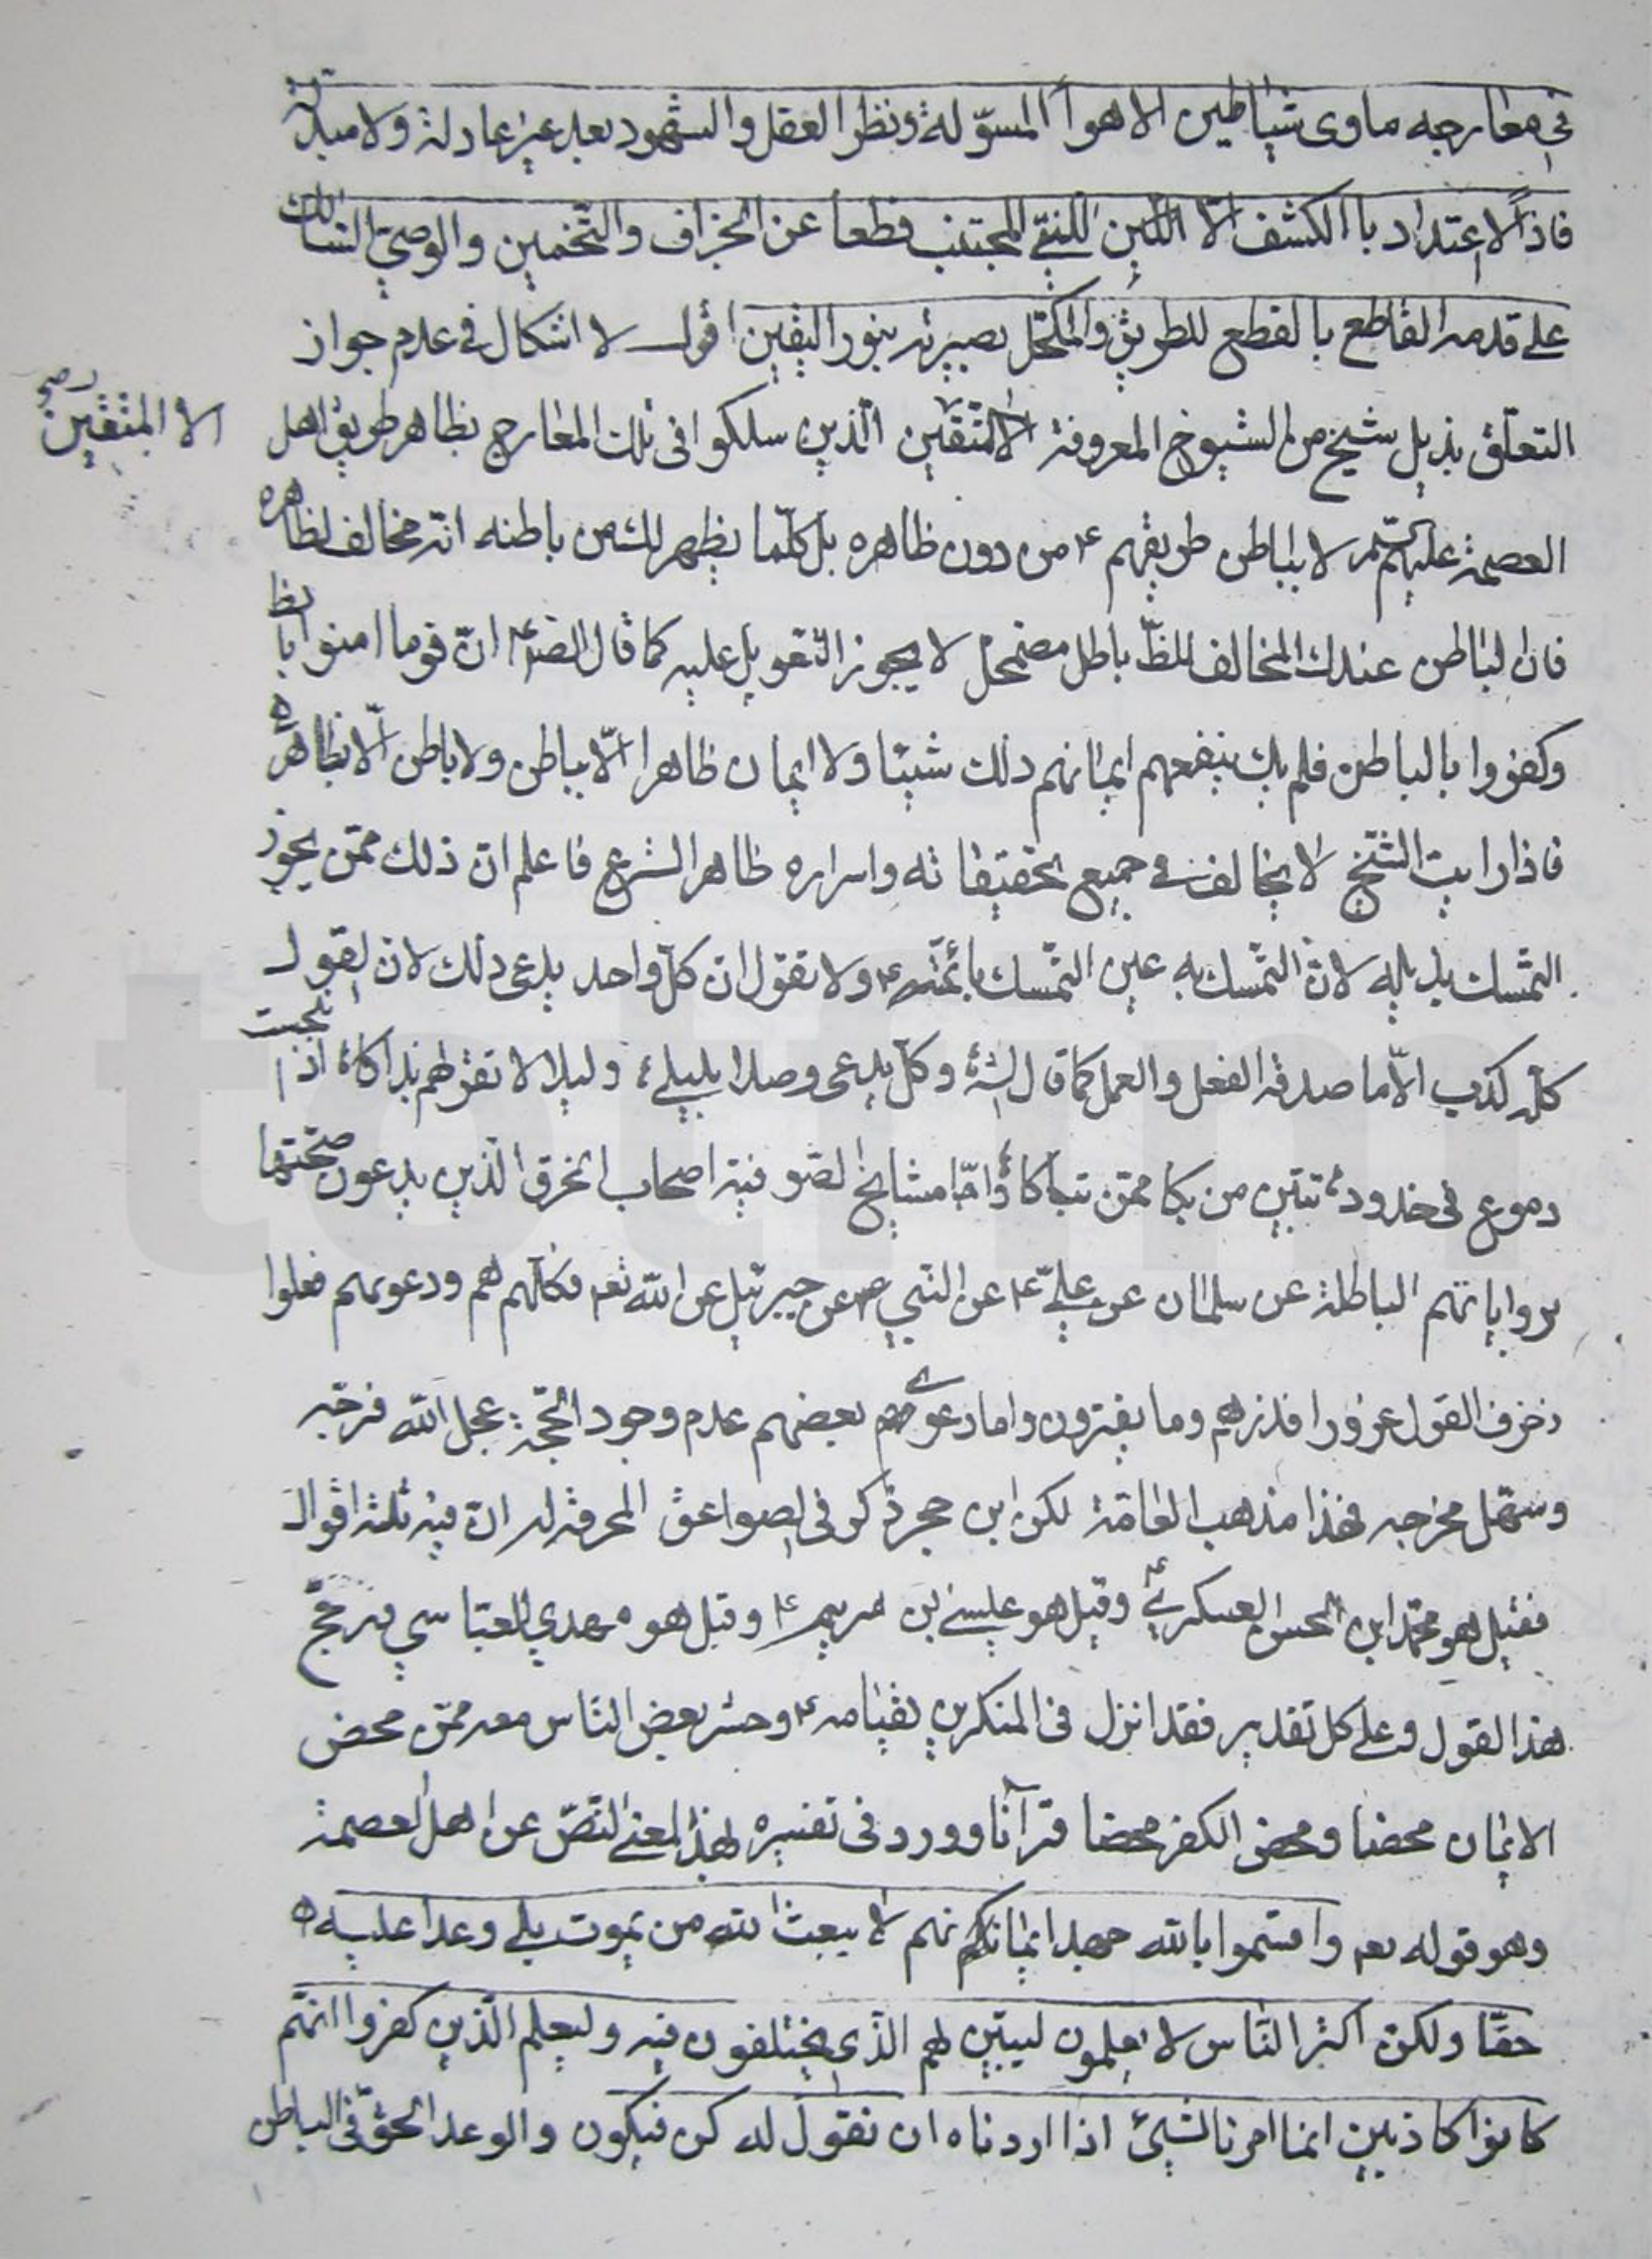 في معارجه ماوى شياطين الاهواء المسوّلة ونظر العقل والشهود بعد غير عادلة ولا مبدلة
فاذاً لا اعتداد باالكشف الّا للنقي المجتنب قطعا عن الخراف والتّخمين والوصيّ السّالك
على قدمه القاطع بالقطع للطريق والمكتحل بصيرته بنور اليقين اقول لا اشكال في عدم جواز
التعلّق بذيل شيخ من الشيوخ المعروفة الا المتّقين الّذين سلكوا في تلك المعارج بظاهر طريق اهل
الا المتقين صح
العصمة عليهم السّلم لا بباطن طريقهم ع من دون ظاهره بل كلّما يظهر لك من باطنه انّه مخالف لظاهره
فان الباطن عندك المخالف للظّ باطل مضمحل لا يجوز التعويل عليه كما قال الصّ ع انّ قوما امنوا بالظا
وكفروا بالباطن فلم يك ينفعهم ايمانهم ذلك شيئا ولا ايمان ظاهرا الّا بباطن ولا باطن الّا بظاهر ه
فاذا رايت الشّيخ لا يخالف في جميع تحقيقاته واسراره ظاهر الشرع فاعلم انّ ذلك ممّن يجوز
التمسّك بذيله لانّ التمسّك به عين التمسّك بائمّته ع ولا تقول انّ كلّ واحد يدعى ذلك لان القول
كلّه كذب الّا ما صدقه الفعل والعمل كما قال الش وكل يدعى وصلا بليلى وليلى لا تقرّ لهم بذاكا اذا انبجست
دموع في خدود تبيّن من بكا ممّن تباكا وامّا مشايخ الصّوفية اصحاب الخرق الّذين يدعون صحّتها
برواياتهم الباطلة عن سلمان عن علي ع عن النّبي ص عن جبرئيل عن الله تعه فكلّهم هم ودعوىهم فعلوا
زخرف القول غرورا فذرهم وما يفترون واما دعوى بعضهم عدم وجود الحجّة عجل الله فرجه
وسهّل مخرجه فهذا مذهب العامّة لكن ابن حجر ذكر في الصواعق المحرقة له انّ فيه ثلثة اقوال
فقيل هو محمّد ابن الحسن العسكري ع وقيل هو عيسى بن مريم ع وقيل هو مهدي العبّاسي ورجّح
هذا القول وعلى كل تقدير فقد انزل في المنكرين لقيامه ع وحشر بعض النّاس معه ممّن محض
الايمان محضا ومحض الكفر محضا قرآنا وورد في تفسيره لهذا المعنى النّصّ عن اهل العصمة
وهو قوله تعه واقسموا بالله جهد ايمانهم لا يبعث الله من يموت بلى وعدا عليه
حقّا ولكنّ اكثر النّاس لا يعلمون ليبيّن لهم الّذي يختلفون فيه وليعلم الّذين كفروا انّهم
كانوا كاذبين انما امرنا لشيئ اذا اردناه ان نقول له كن فيكون والوعد الحقّ في الباطن